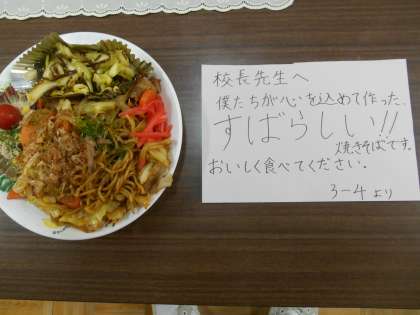 校長先生へ
僕たちが心を込めて作った、
すばらしい!!
焼きそばです。
おいしく食べてください。
3-4 より